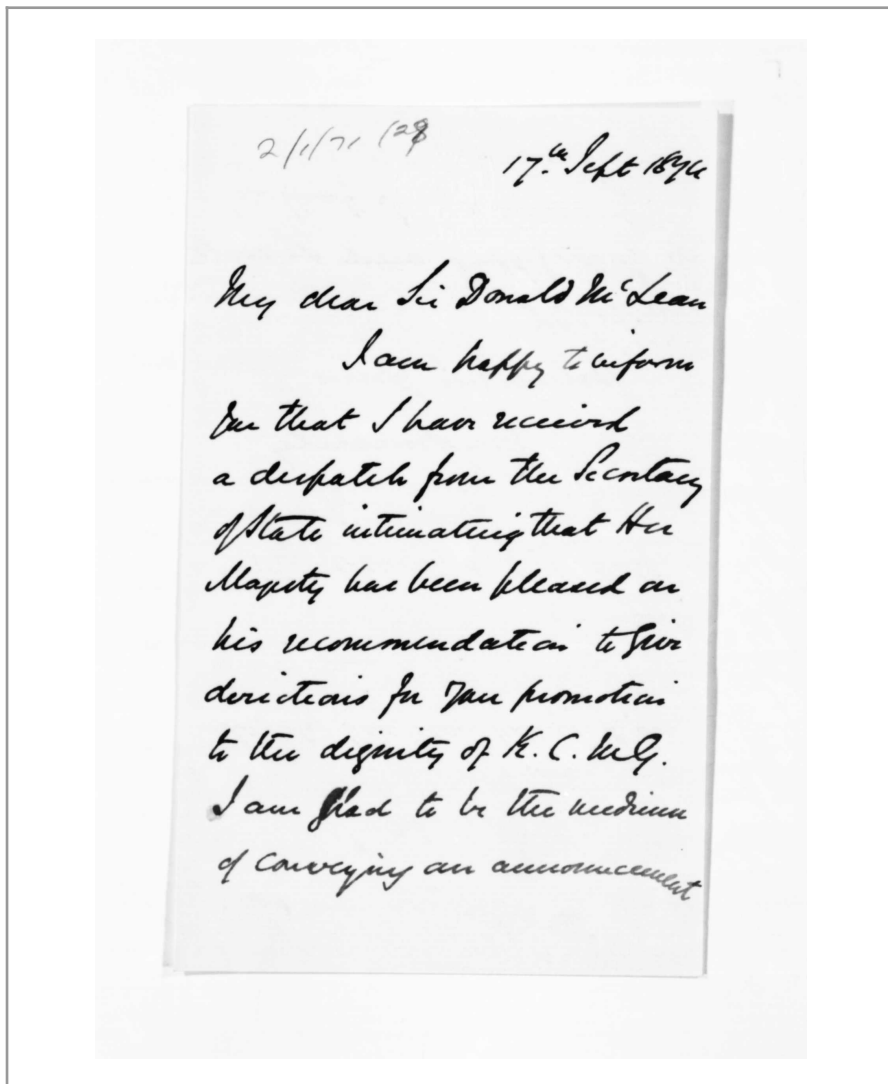 2/1/71 (28
17th Sept 1874
My dear Sir Donald McLean
I am happy to inform
You that I have received
a despatch from the Secretary
of State intimating that Her
Majesty has been pleased on
his recommendation to give
directions for your promotion
to the dignity of K. C. M. G.
I am glad to be the medium
of conveying an announcement